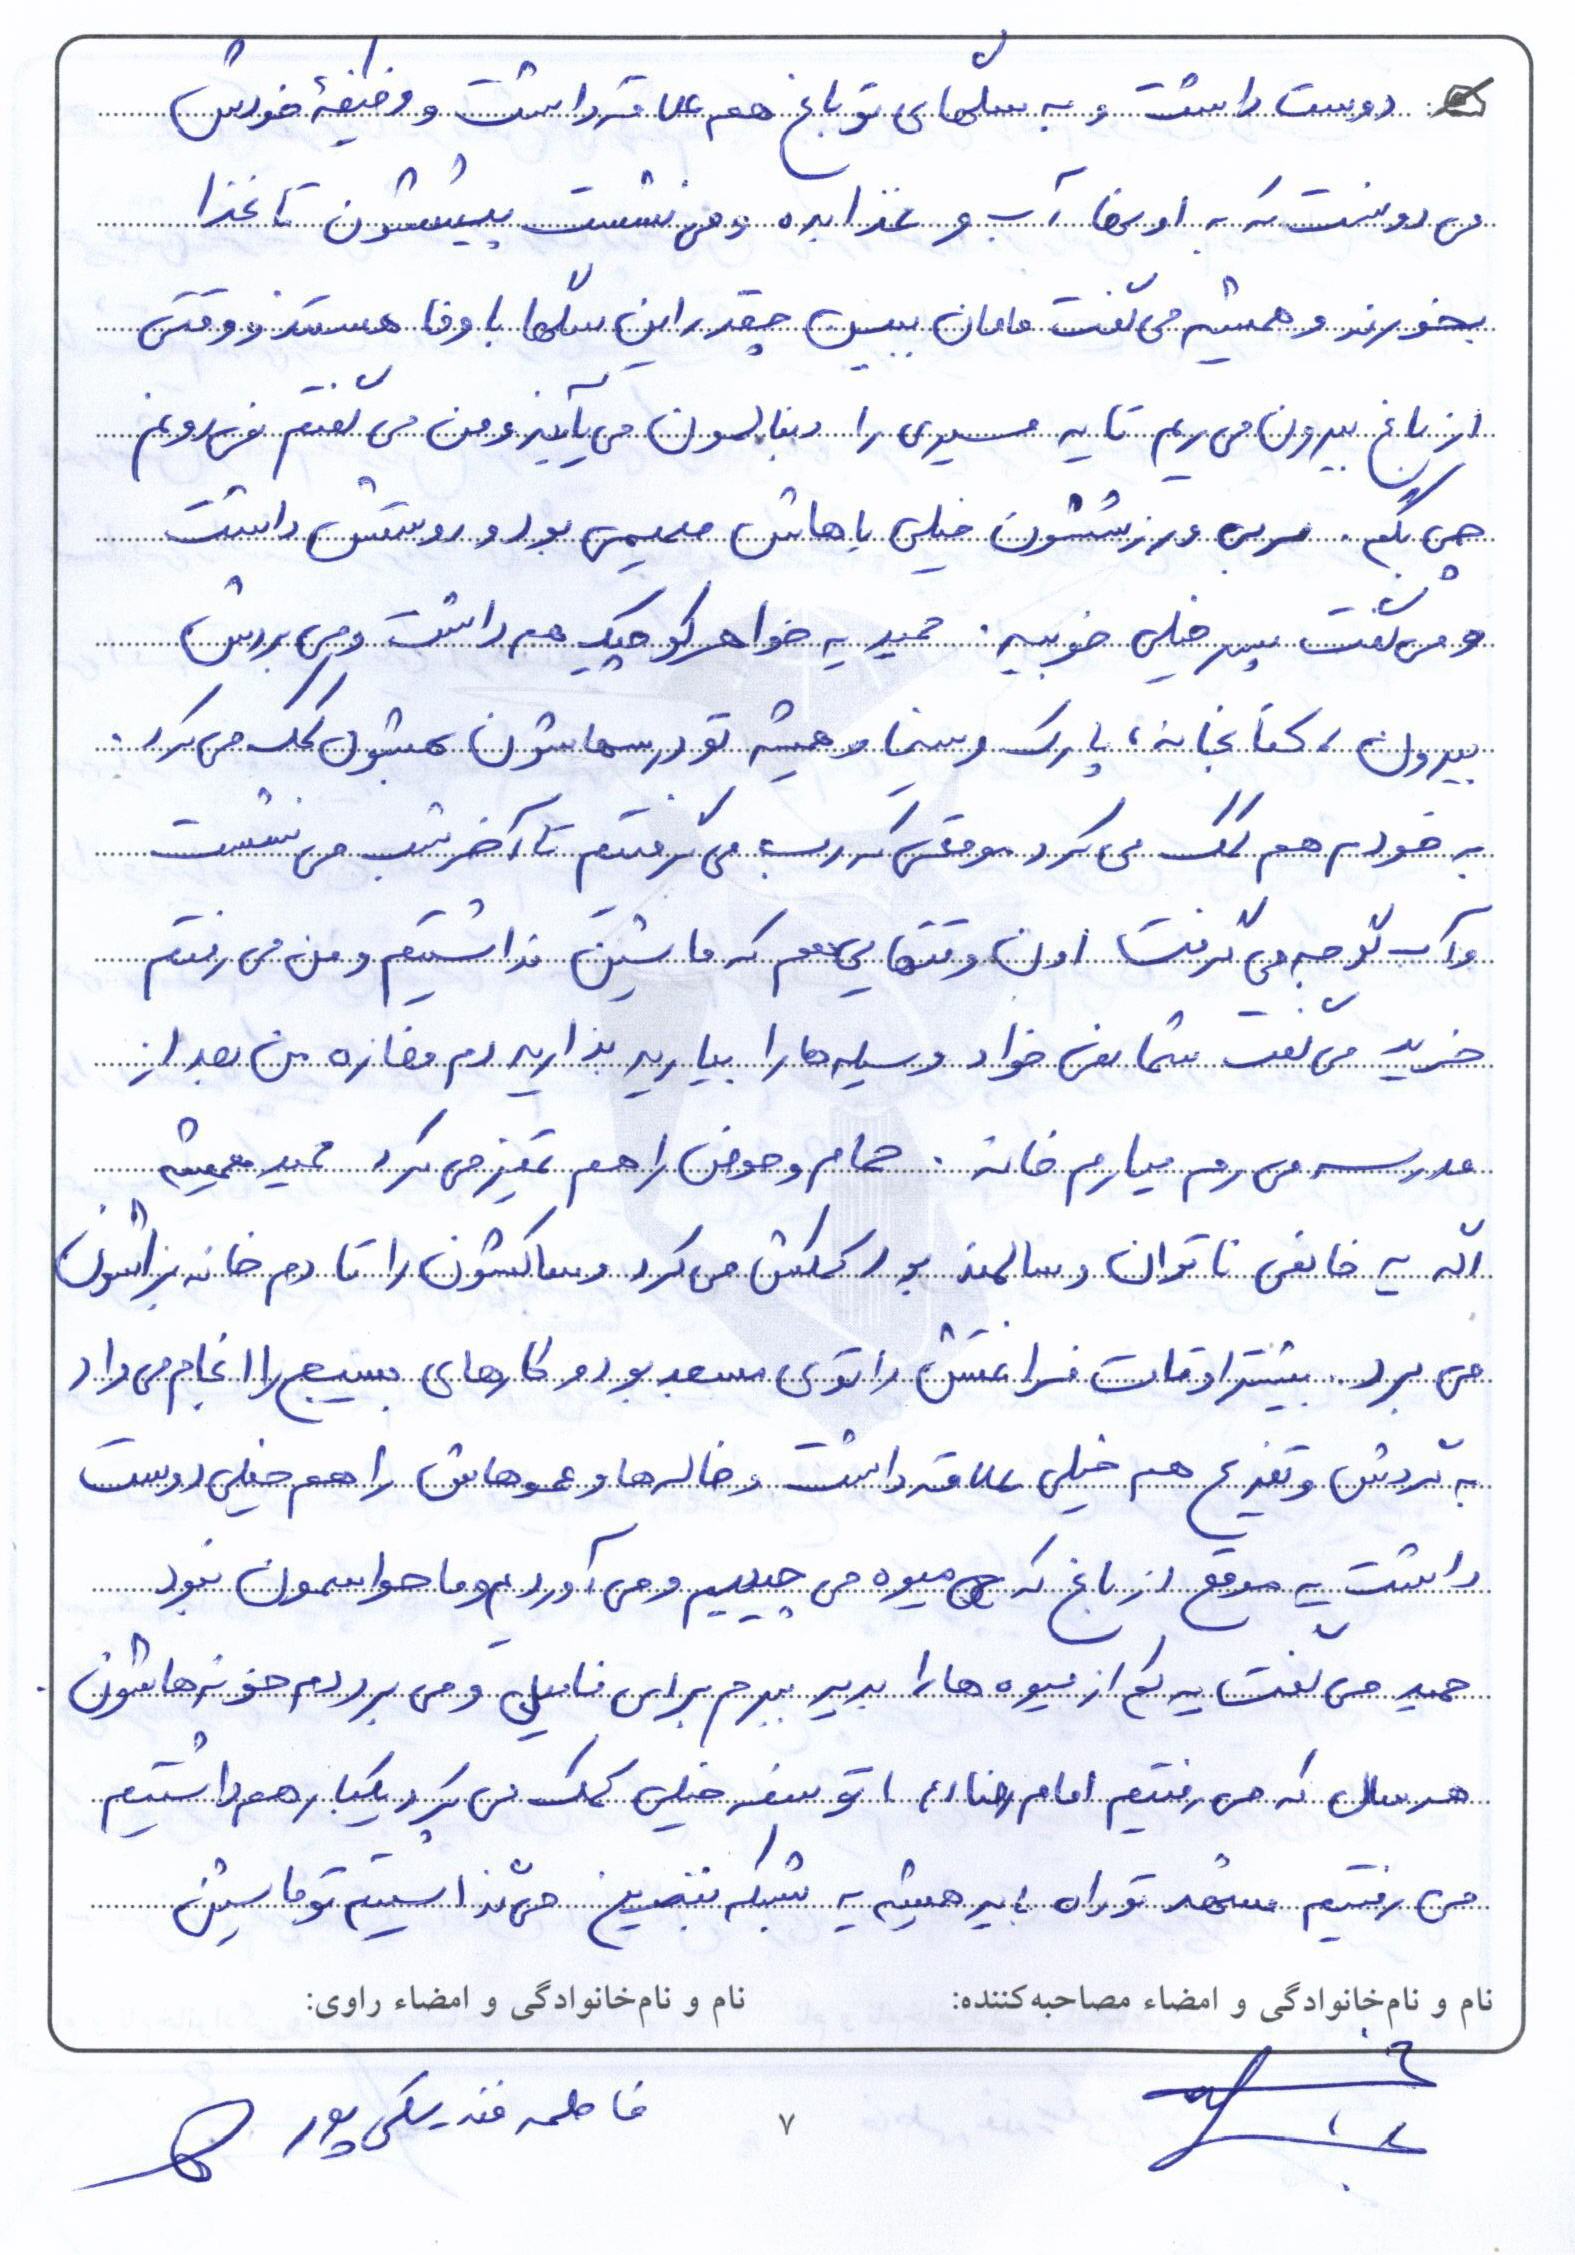 دوست داشت و به سگهای تو باغ هم علاقه داشت و وظیفهٔ خودش
می دونست که به اونها آب و غذا بده و می نشست پیششون تا غذا
بخورند و همیشه می گفت مامان ببین چقدر این سگها با وفا هستند و وقتی
از باغ بیرون می ریم تا یه مسیری را دنبالمون می یآیند و من می گفتم نمی دونم
چی بگم. مربی ورزششون خیلی باهاش صمیمی بود و دوستش داشت
و می گفت پسر خیلی خوبیه. حمید یه خواهر کوچیک هم داشت و می بردش
بیرون، کتابخانه، پارک و سینما و همیشه تو درسهاشون بهشون کمک می کرد.
به خودم هم کمک می کرد موقعی که رب می گرفتم تا آخر شب می نشست
و آب گوجه می گرفت اون وقتهایی هم که ماشین نداشتیم و من می رفتم
خرید می گفت شما نمی خواد وسیله ها را بیارید بذارید دم مغازه من بعد از
مدرسه می رم میارم خانه. حمام و حوض را هم تمیز می کرد حمید همیشه
اگه یه خانمی ناتوان و سالمند بود کمکش می کرد و ساکشون را تا دم خانه براشون
می برد. بیشتر اوقات فراغتش را توی مسجد بود و کارهای بسیج را انجام می داد
به گردش و تفریح هم خیلی علاقه داشت و خاله ها و عموهاش را هم خیلی دوست
داشت یه موقع از باغ که میوه می چیدیم و می آوردیم و ما حواسمون نبود
حمید می گفت یه کم از میوه ها را بدید ببرم برای فامیل و می برد دم خونه هاشون.
هر سال که می رفتیم امام رضا (ع) تو سفر خیلی کمک می کرد یکبار هم داشتیم
می رفتیم مشهد تو راه همیشه یه شبکه بنزین می گذاشتیم تو ماشین
نام و نام‌خانوادگی و امضاء مصاحبه‌کننده: نام و نام‌خانوادگی و امضاء راوی:
فاطمه فندرسکی پور
۷